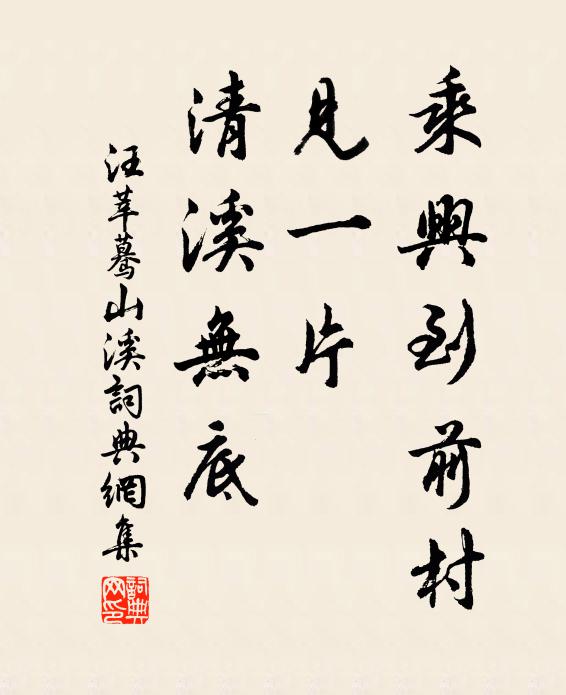 乘興到前村
見一片
清溪無底
汪莘驀山溪詞典網集
詞典网印